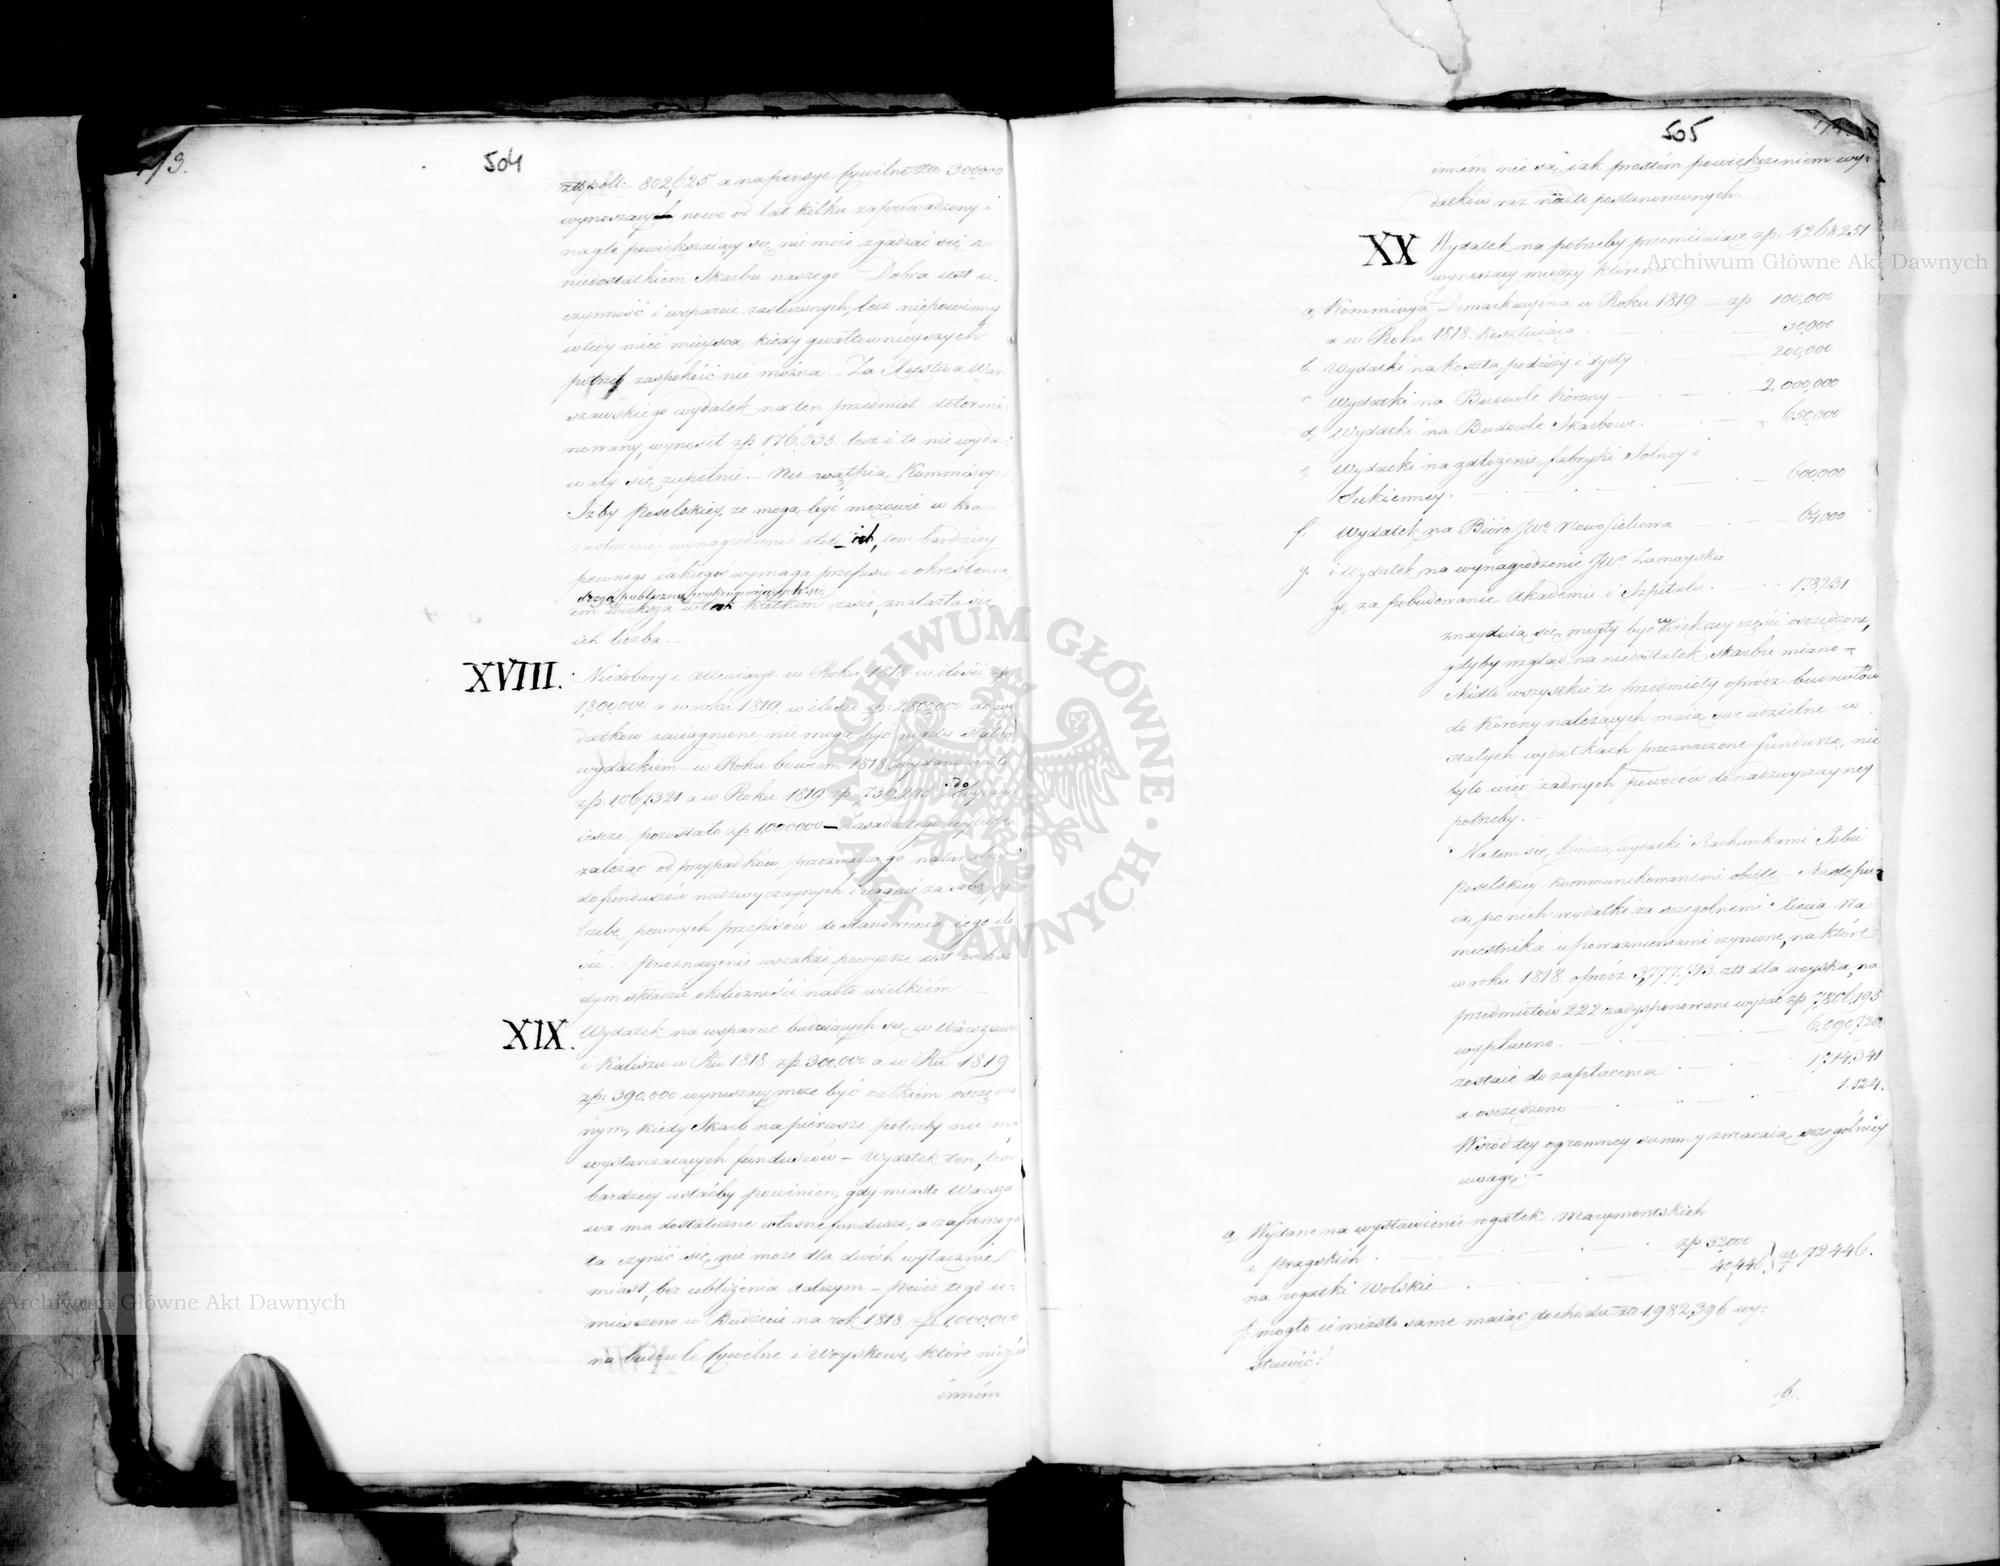 504
173.
złt poll: 802,625. a na pensye Cywilne złtu 300,000
wynoszący nowo od lat kilku zaprowadzony i
nagle powiększaiący się, nie może zgadzać się z
niedostatkiem Skarbu naszego. Dobra iest u=
czynność i wsparcie zasłużonych, lecz niepowinny
wtedy mieć mieysca, kiedy gwałtownieyszych
potrzeb zaspokoić nie można. – Za Xięstwa War=
szawskiego wydatek na ten przedmiot determi=
nowany, wynosił zp 176,035. lecz i te nie wyda=
wały się zupełnie. – Nie wątpią Kommissye
Izby Poselskiey, że mogą być mężowie w kraiu
zasłużeni, wynagrodzenie atoli ich, tem bardziey
pewnego iakiegoś wymaga przepisu i określenia,
drogą publiczną
im większa w tak krótkim czasie, znalazła się
ich liczba. –
XVIII. Niedobory i allewiacye w Roku 1818 w ilości zp.
1,800,000 a w roku 1819. w ilości zp: 2,800,000 do wy
datków zaciągnione, nie mogą być nigdy stałym
wydatkiem – w Roku bowiem 1818. wydano na to
zp: 1,061,321 a w Roku 1819. zp. 739,295 do
ieszcze pozostało zp 1,000,000 – Zasada tego wydatku
zależąc od przypadków, przeznacza go naturalnie
do funduszów nadzwyczaynych i ciągnie za sobą po
trzebę pewnych przepisów do stanowienia iego ilo
ści. – Przeznaczenie wszakże powyższe iest w każ
dym składzie okoliczności nadto wielkiém. –
XIX. Wydatek na wsparcie buduiących się w Warszawie
i Kaliszu w Rku 1818 zp 300,000 a w Rku 1819
zp: 390,000 wynoszący, może być całkiem oszczędzo
nym, kiedy Skarb na pierwsze potrzeby nie ma
wystarczaiących funduszów – Wydatek ten, tém
bardziey ustaćby powinien, gdy miasto Warsza
wa ma dostateczne własne fundusze, a zapomoga
ta czynić się nie może dla dwóch wyłącznie
miast, bez ubliżenia dalszym – prócz tego u=
mieszczono w Budżecie na rok 1818 zp. 1,000,000
na budowle Cywilne i Woyskowe, które niczém
inném
505
inném nie są, iak prostém powiększeniem wy=
datków raz nadto postanowionych.
XX Wydatek na potrzeby przemiiaiące zp. 4,268,251
wynoszący między któremi
a, Kommissya Demarkacyina w Roku 1819 – zp. 100,000
a w Roku 1818. kosztuiąca 30,000
b. Wydatki na koszta podróży i dyety 200,000
c Wydatki na Budowle Korony 2,000,000
d, Wydatki na Budowle Skarbowe. 650,000
e, Wydatki na założenie fabryki Solney i
Sukienney. 600,000
f, Wydatek na Bióro JWo Nowosielcowa 64,000
g. i Wydatek na wynagrodzenie JWo Zamoyskie=
go, za pobudowanie Akademii i Szpitalu. 178,231
znayduią się, mogły być w większey części oszczędzone,
gdyby wzgląd na niedostatek skarbu miano –
Nadto wszystkie te przedmioty oprócz budowlów
do Korony należących maią swe udzielne w
stałych wydatkach przeznaczone fundusze, nie
było więc żadnych powodów do nadzwyczayney
potrzeby. –
Na tem się kończą wydatki Rachunkami Izbie
Poselskiey kommunikowanemi obięte – Następu=
ią po nich wydatki za szczególnemi Xięcia Na=
miestnika upoważnieniami czynione, na które
w roku 1818. oprócz 3,777,713. złt dla woyska, na
przedmiotów 222 zadysponowano wydać zp 7,806,195
wypłacono. 6,090,730.
zostaie do zapłacenia 1,714,341
a oszczędzono 1,124.
Wśród tey ogromney summy zwracaią szczególniey
uwagę: –
a, Wydane na wystawienie rogatek Marymontskich
i Pragskich zp 32000
na rogatki Wolskie – 40,446 } zp 72446.
f: mogło ie miasto same maiąc dochodu złt 1,982,396 wy=
stawić:/
b.
ARCHIWUM GŁÓWNE · AKT DAWNYCH ·
Archiwum Główne Akt Dawnych
Archiwum Główne Akt Dawnych